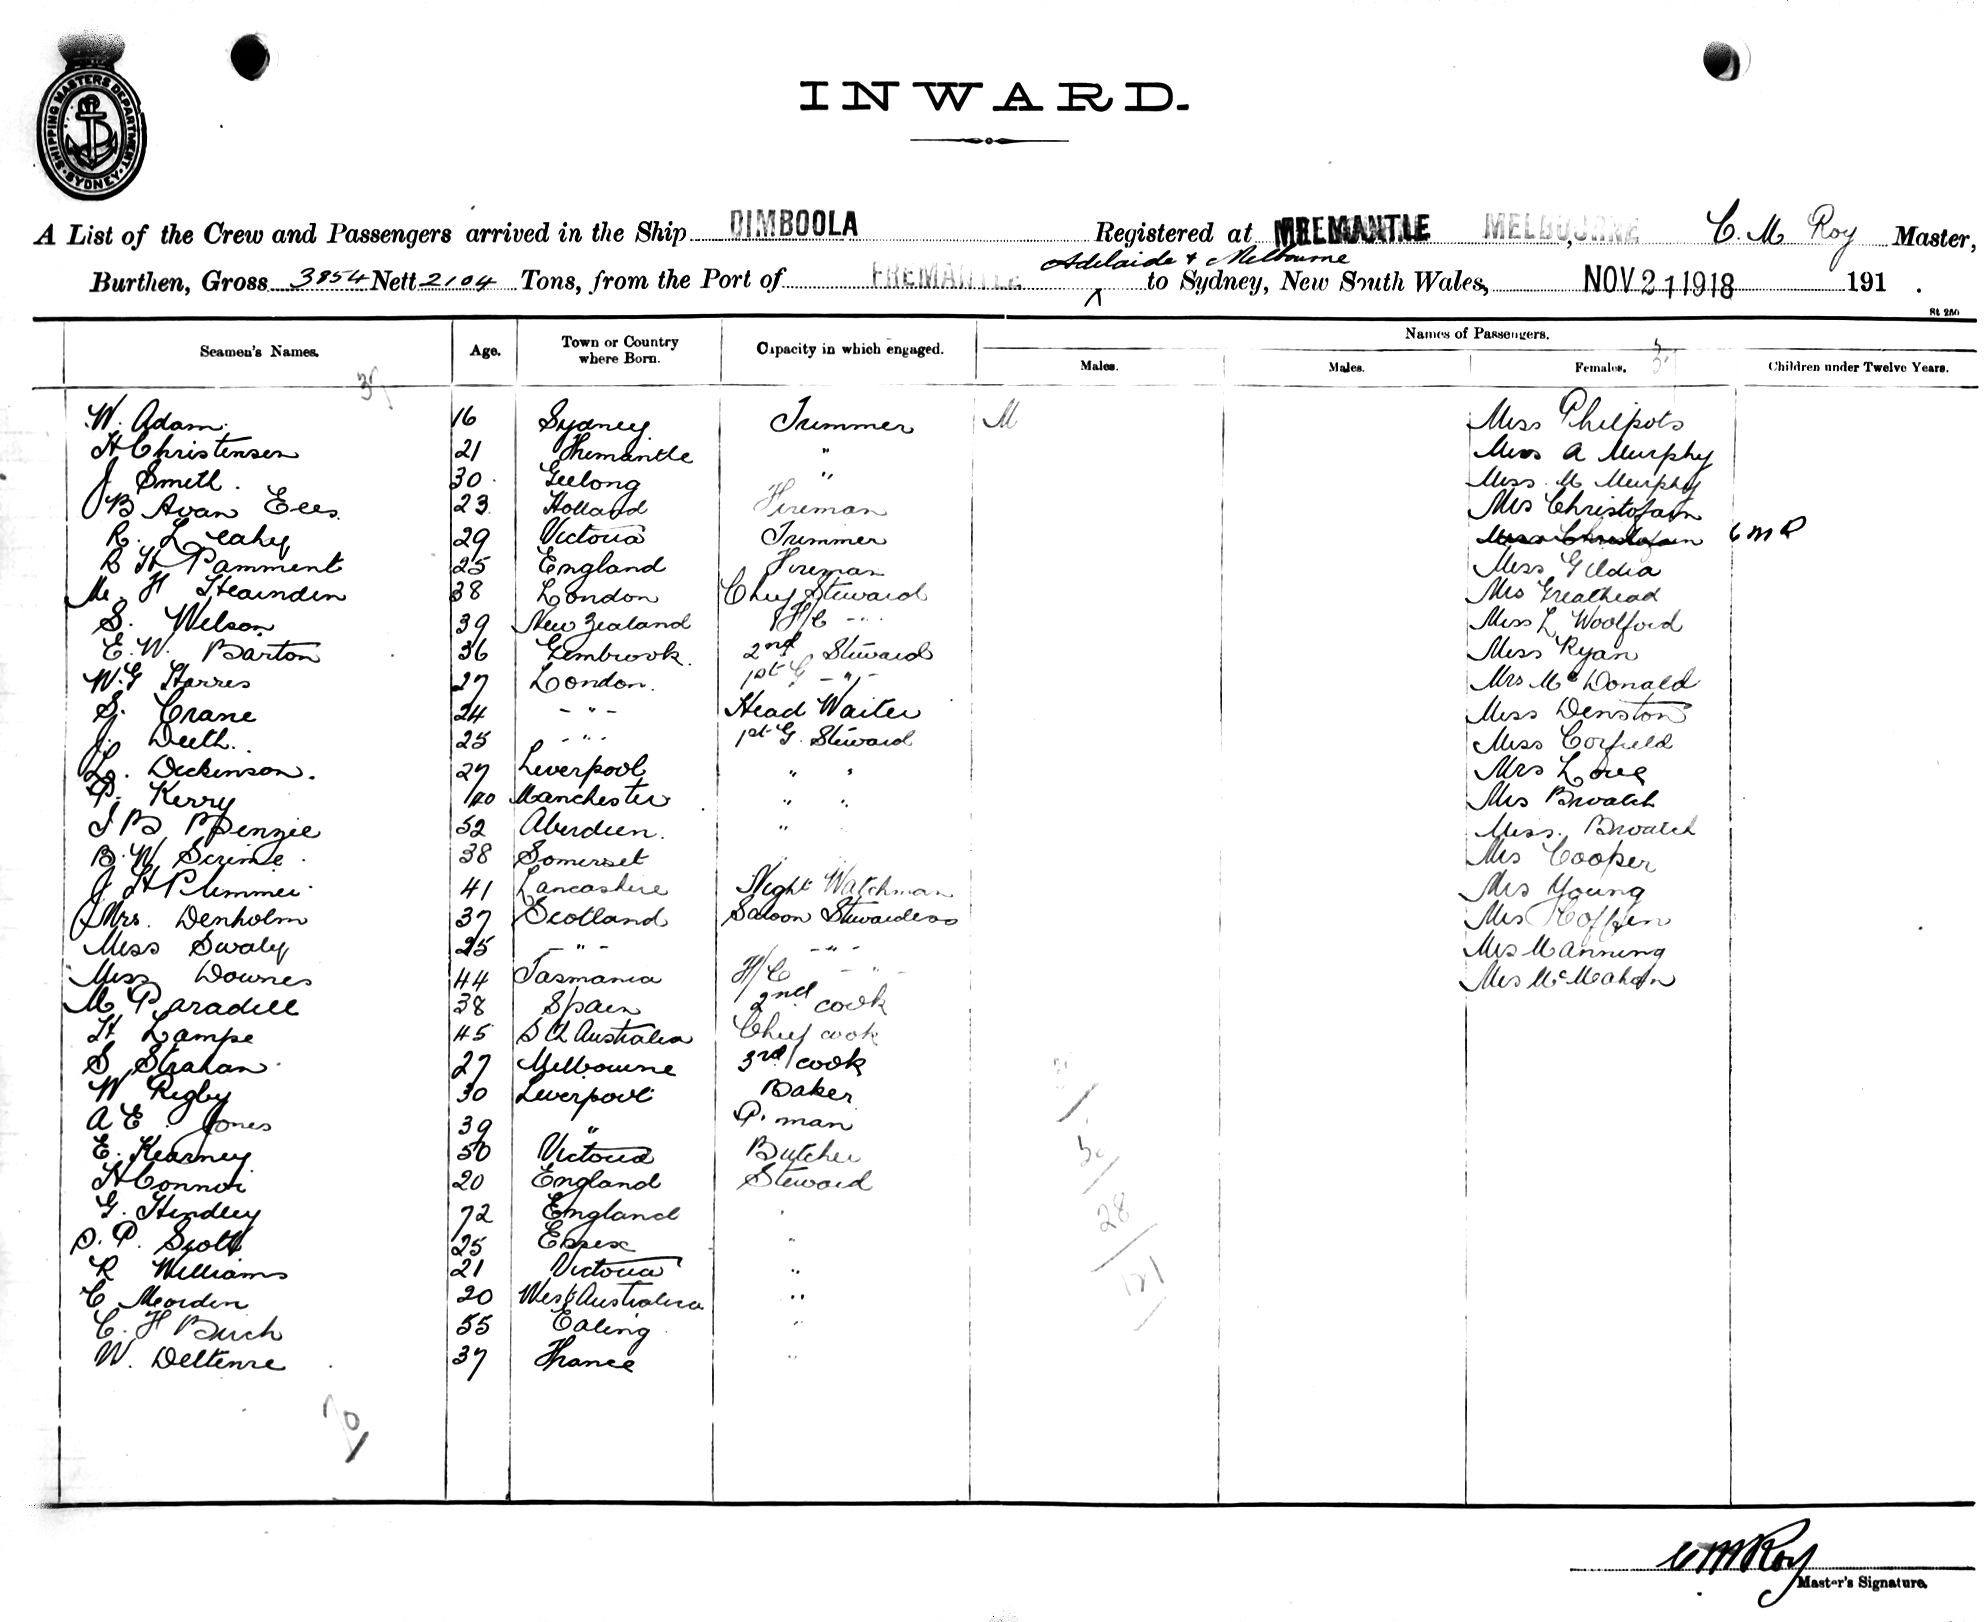 SHIPPING MASTERS DEPARTMENT
SYDNEY
INWARD.
A List of the Crew and Passengers arrived in the Ship DIMBOOLA Registered at MELBOURNE, C. M Roy Master,
Adelaide & Melbourne
Burthen, Gross 3854 Nett 2104 Tons, from the Port of FREMANTLE ^ to Sydney, New South Wales, NOV 21 1918 191 .
St 250
Seamen's Names. Age. Town or Country where Born. Capacity in which engaged. Names of Passengers.
Males. Males. Females. Children under Twelve Years.
W. Adam 16 Sydney Trimmer M Miss Philpots
H Christensen 21 Fremantle " Miss A Murphy
J Smith 30 Geelong " Miss M Murphy
23 Holland Fireman Mrs Christofain
R. Leahy 29 Victoria Trimmer Miss Christofain C M R
R H Pamment 25 England Fireman Miss Gildia
38 London Chief Steward Mrs Greathead
S. Wilson 39 New Zealand F/C - " - Miss L Woolford
E. W. Barton 36 Gembrook 2nd Steward Miss Ryan
W. G Harris 27 London. 1st G - " - Mrs McDonald
S. Crane 24 - " - Head Waiter Miss Denston
J. Deeth 25 - " - 1st G. Steward Miss Corfield
L. Dickinson. 27 Liverpool " " Mrs Love
P. Kerry 40 Manchester " " Mrs Browatch
52 Aberdeen. " Miss. Browatch
B. W Scrime 38 Somerset Mrs Cooper
J H Plummer 41 Lancashire Night Watchman Mrs Young
Mrs. Denholm 37 Scotland Saloon Stewardess Mrs
Miss Swaly 25 - " - - " - Mrs Manning
Miss Downes 44 Tasmania F/C - " - Mrs McMahon
M Paradell 38 Spain 2nd cook
H Lampe 45 Sth Australia Chief cook
S Strahan 27 Melbourne 3rd cook
W Rigby 30 Liverpool Baker
A E. Jones 39 " P. man
E. Kearney 50 Victoria Butcher
H Connor 20 England Steward
G. Hindley 72 England "
S. P. Scott 25 Essex "
R Williams 21 Victoria "
C Mordin 20 West Australia "
C. H Birch 55 Ealing "
W. Deltenre 37 France "
28
121
C M Roy
Master's Signature.